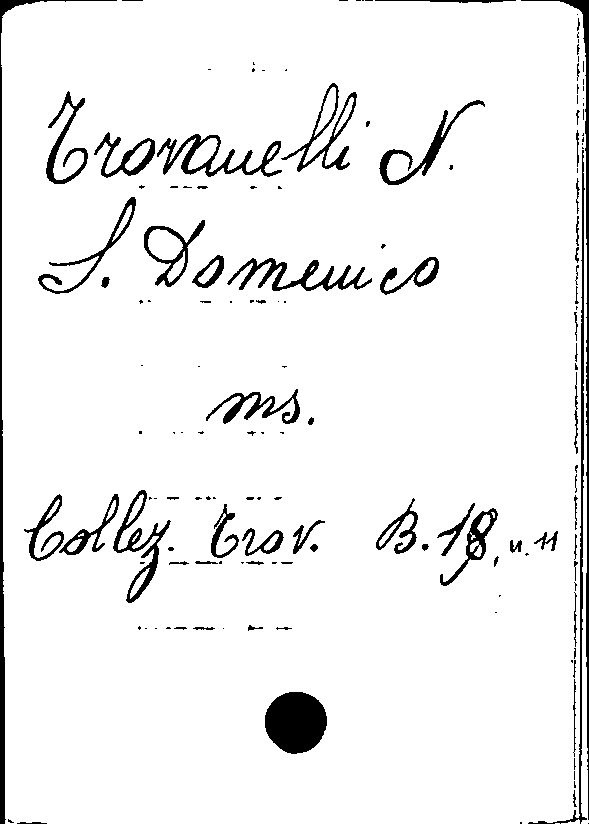 Trovanelli N.
S. Domenico
ms.
Collez. Trov. B. 18, n. 11